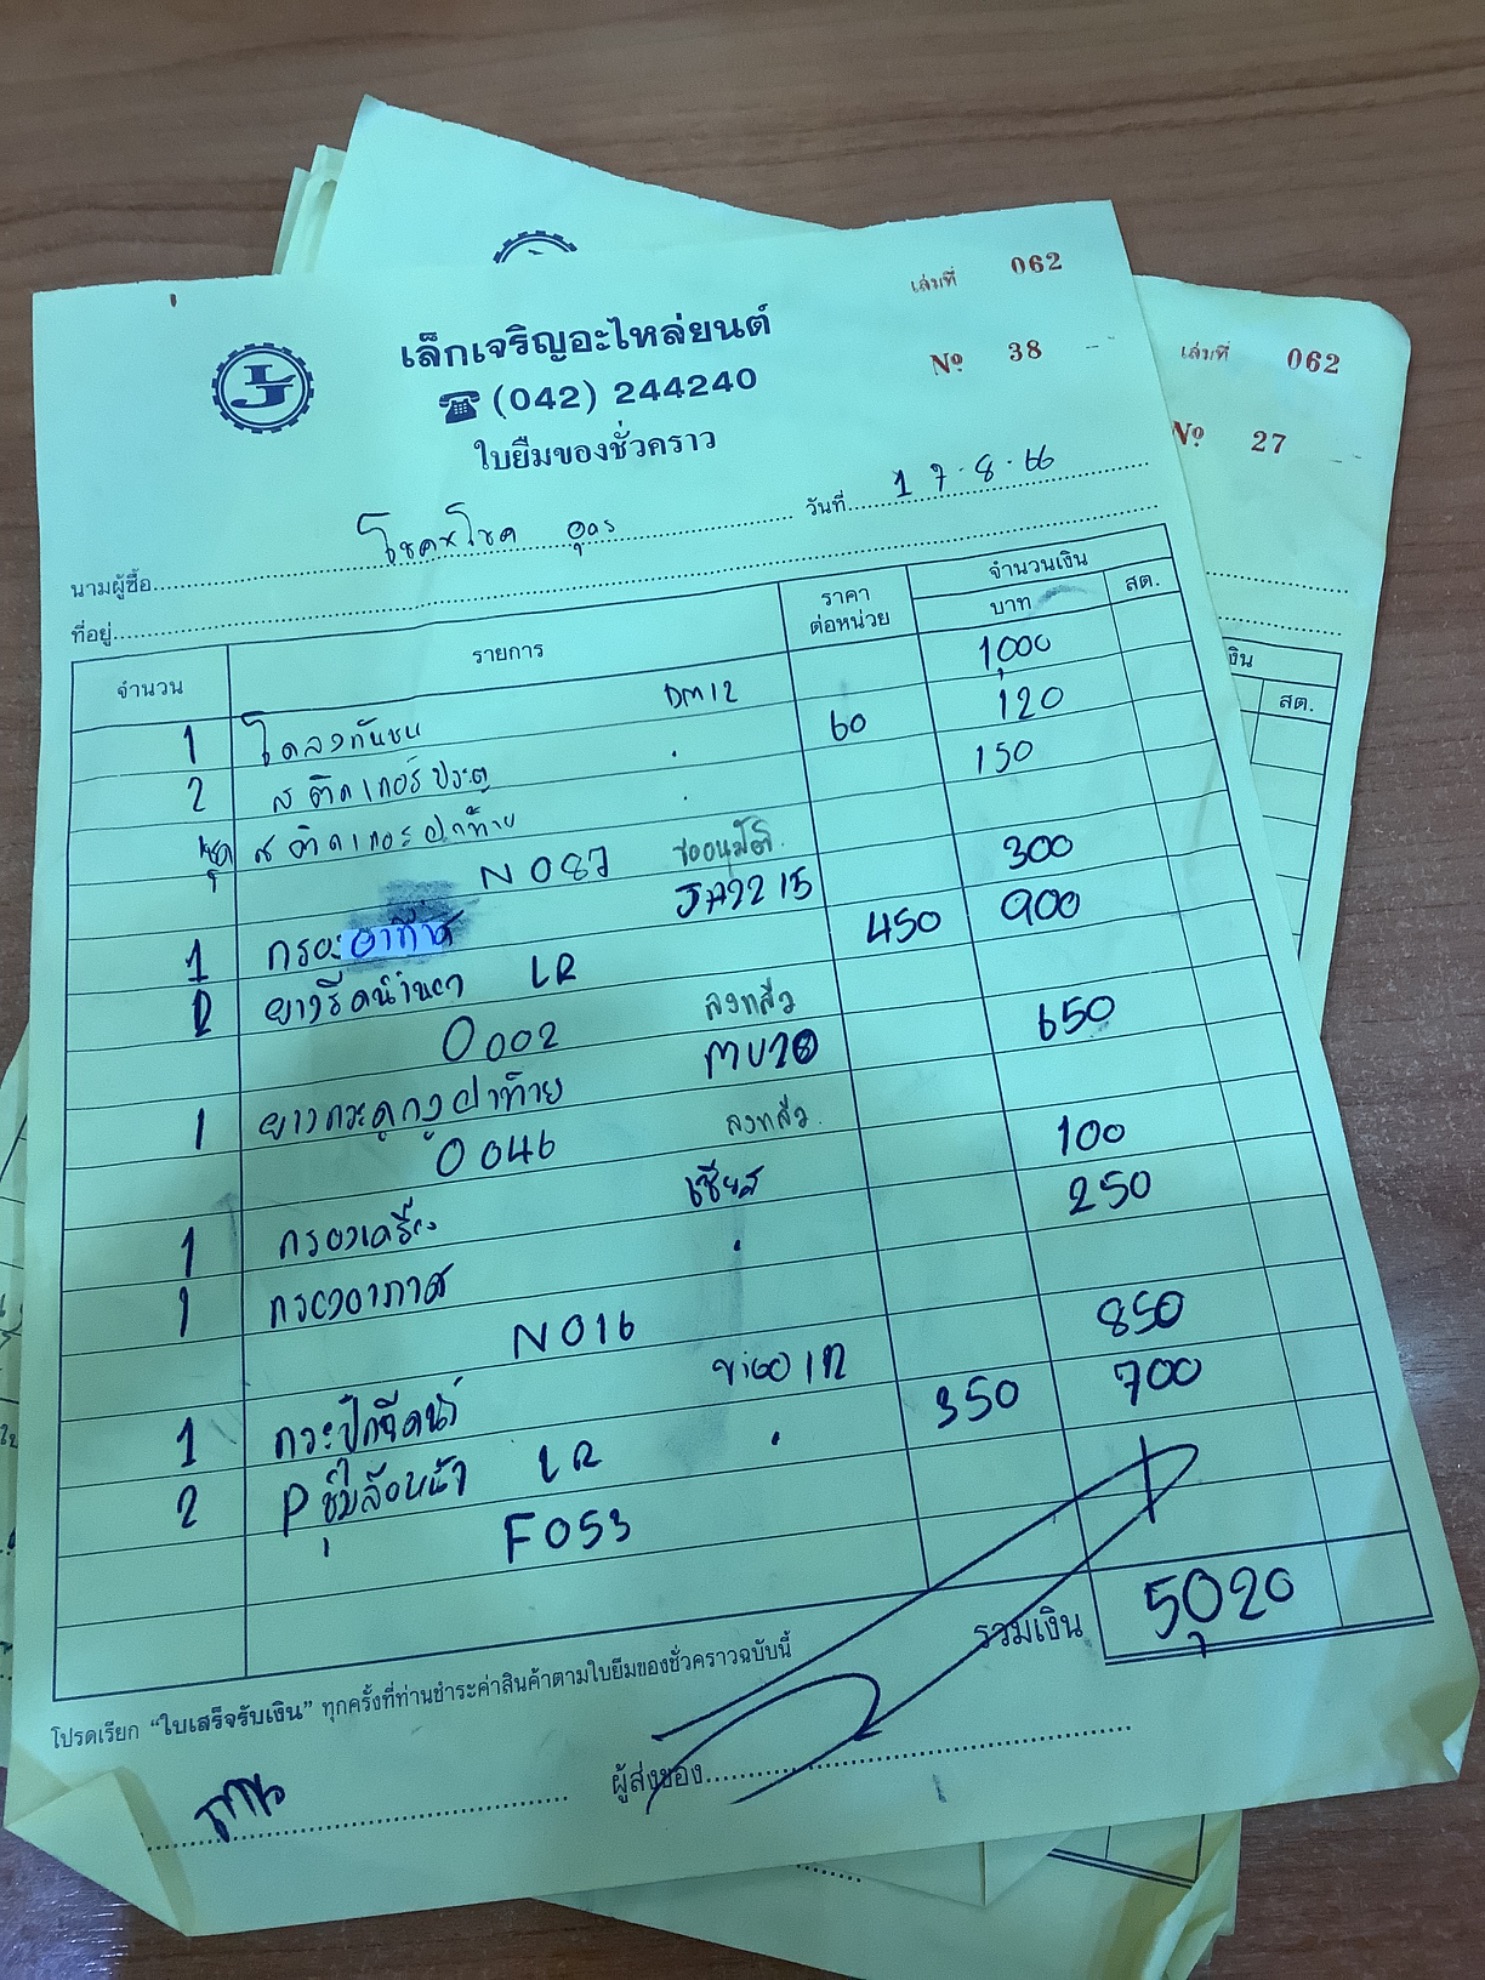 เล่มที่ 062
เล็กเจริญอะไหล่ยนต์
Nº 38
(042) 244240
ใบยืมของชั่วคราว
นามผู้ซื้อ โชค x โชค อุดร วันที่ 17.8.66
ที่อยู่
จำนวน รายการ ราคาต่อหน่วย จำนวนเงิน บาท สต.
1 DM12 1,000
2 สติกเกอร์ประตู 60 120
ชุด สติกเกอร์ฝาท้าย 150
N 087 ขออนุมัติ
1 JA22 15 300
2 ยางรีดน้ำ LR 450 900
O 002 ลงแล้ว
1 ยางกระดูกงูฝาท้าย 650
O 046 ลงแล้ว
1 กรองเครื่อง เซียส 100
1 กรองอากาศ 250
N 016
1 กระป๋กฉีดน้ำ 850
2 P ซุ้มล้อหน้า LR 350 700
F 053
รวมเงิน 5,020
โปรดเรียก "ใบเสร็จรับเงิน" ทุกครั้งที่ท่านชำระค่าสินค้าตามใบยืมของชั่วคราวฉบับนี้
ผู้ส่งของ
เล่มที่ 062
Nº 27
สต.